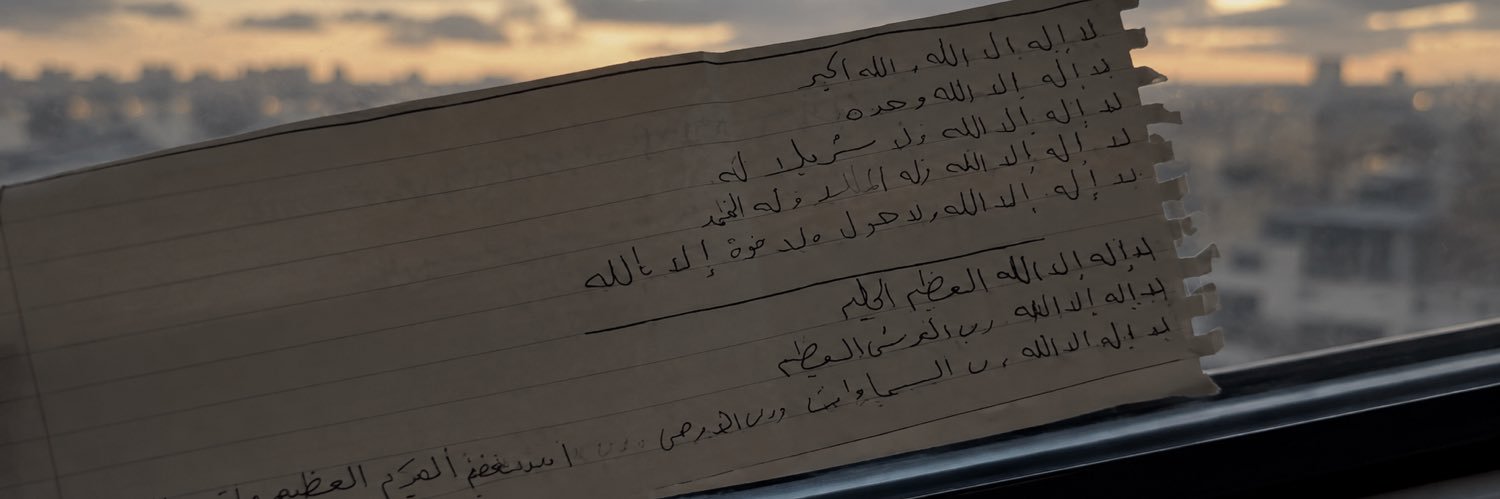 لا إله إلا الله، الله اكبر
لا إله إلا الله وحده
لا إله إلا الله ولا شريك له
لا إله إلا الله وله الملك وله الحمد
لا إله إلا الله ولا حول ولا قوة إلا بالله
لا إله إلا الله العظيم الحليم
لا إله إلا الله رب العرش العظيم
لا إله إلا الله رب السماوات ورب الارض
استغفر العظيم